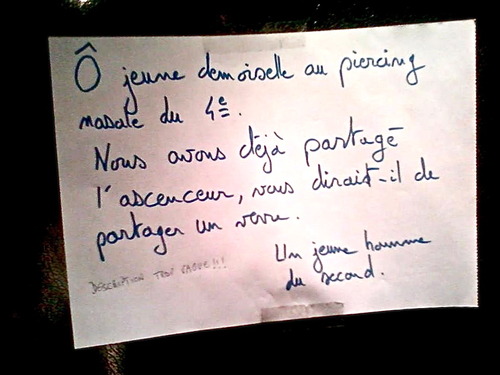 Ô jeune demoiselle au piercing
nasale du 4e.
Nous avons déjà partagé
l'ascenceur, vous dirait-il de
partager un verre.
Un jeune homme
du second.
DESCRIPTION TROP VAGUE!!!